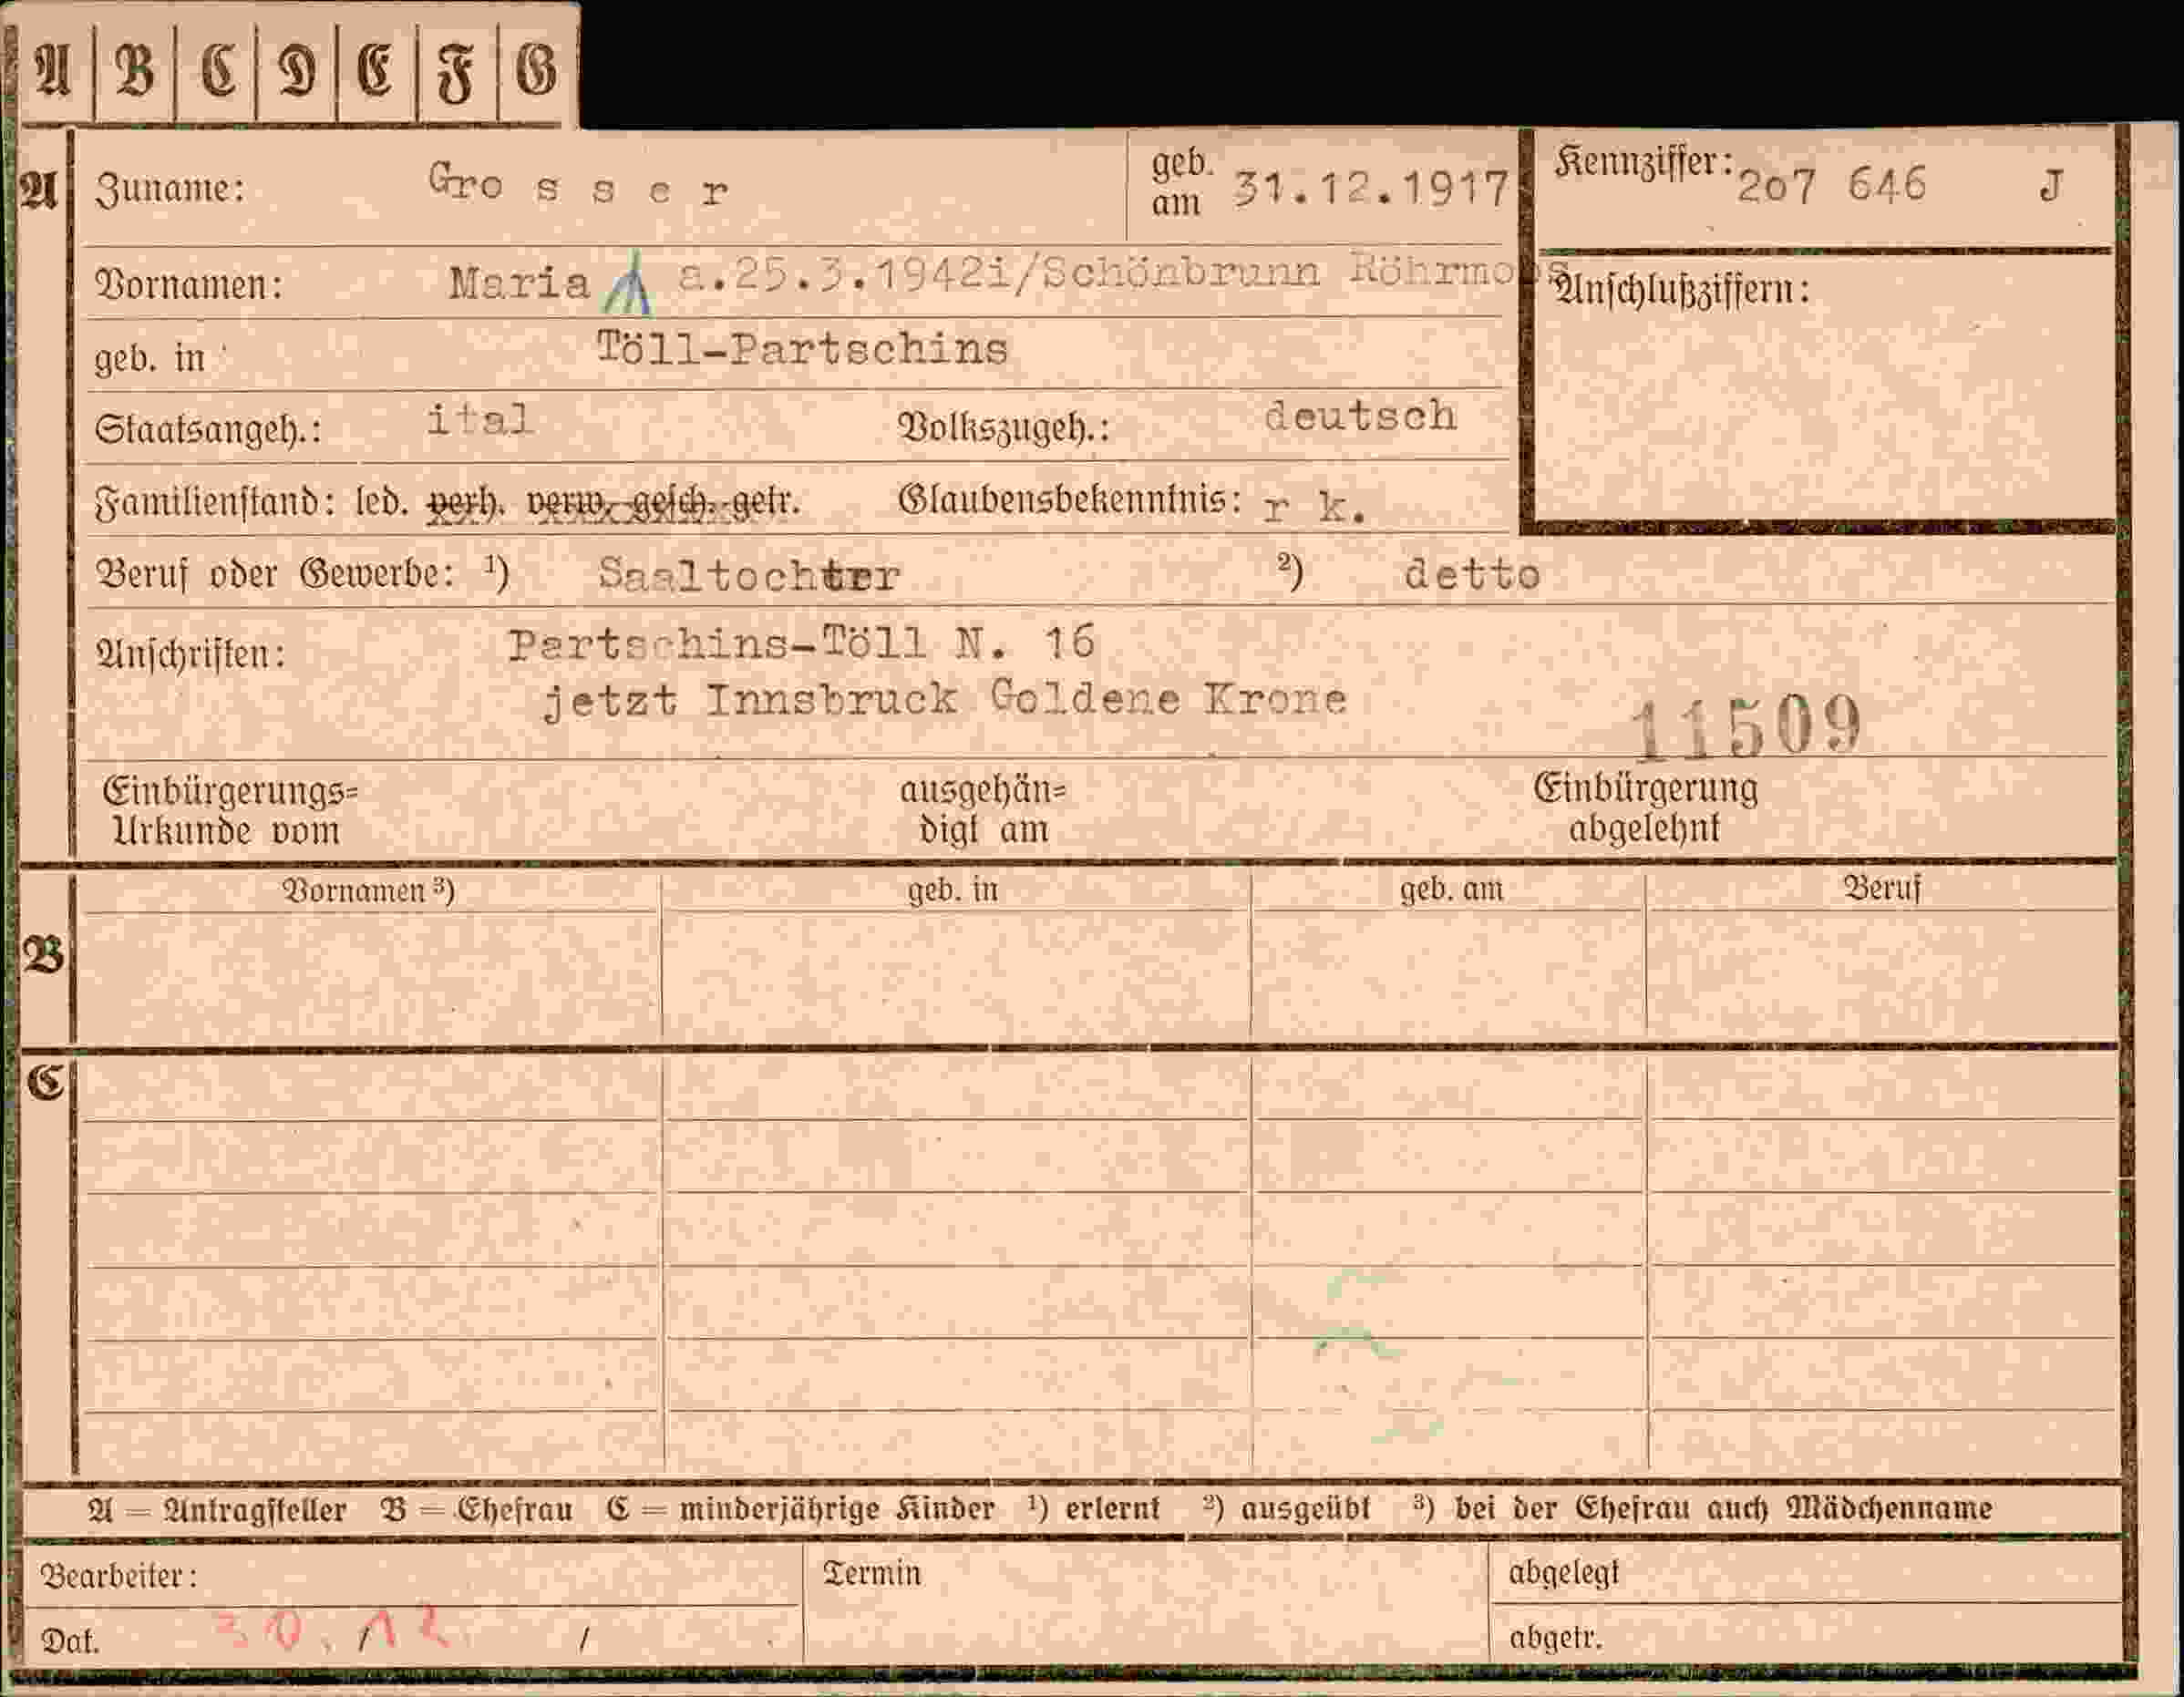 A B C D E F G
A Zuname: Grosser geb. am 31.12.1917 Kennziffer: 207 646 J
Vornamen: Maria a.25.3.1942i/Schönbrunn Röhrmoos
Anschlußziffern:
geb. in Töll-Partschins
Staatsangeh.: ital Volkszugeh.: deutsch
Familienstand: led. verh. verw. gesch. getr. Glaubensbekenntnis: r k.
Beruf oder Gewerbe: ¹) Saaltochter ²) detto
Anschriften: Partschins-Töll N. 16
jetzt Innsbruck Goldene Krone
11509
Einbürgerungs= ausgehän= Einbürgerung
Urkunde vom digt am abgelehnt
Vornamen ³) geb. in geb. am Beruf
B
C
A = Antragsteller B = Ehefrau C = minderjährige Kinder ¹) erlernt ²) ausgeübt ³) bei der Ehefrau auch Mädchenname
Bearbeiter: Termin abgelegt
Dat. 30. 12. / abgetr.